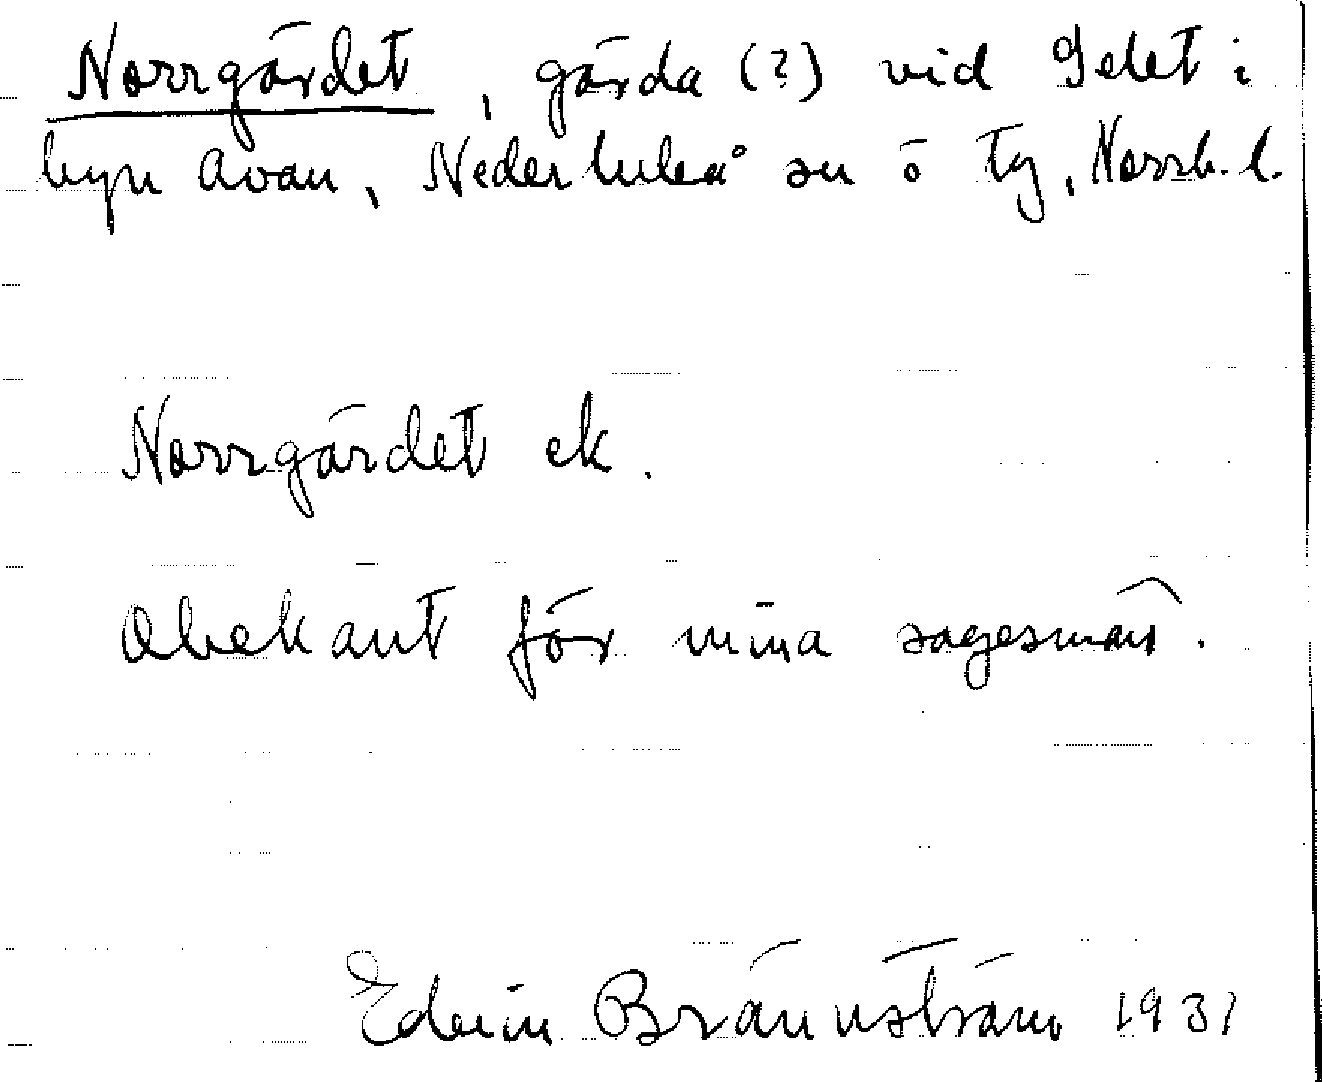 Norrgärdet, gärda (?) vid Selet i
byn Avan, Nederluleå sn ö tg, Norrb. l.
Norrgärdet ek.
Obekant för mina sagesmän.
Edvin Brännström 1931